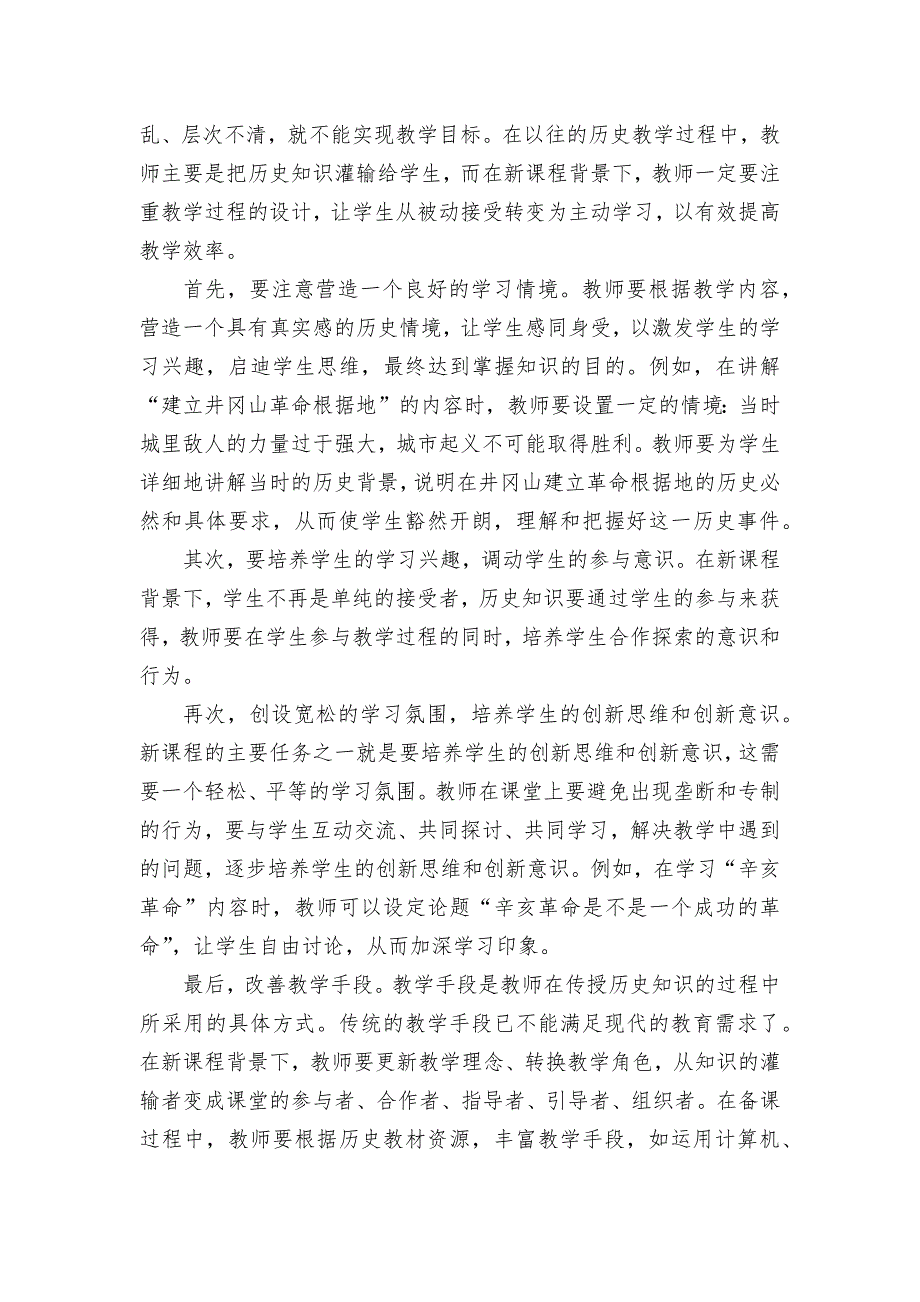 乱、层次不清，就不能实现教学目标。在以往的历史教学过程中，教
师主要是把历史知识灌输给学生，而在新课程背景下，教师一定要注
重教学过程的设计，让学生从被动接受转变为主动学习，以有效提高
教学效率。
首先，要注意营造一个良好的学习情境。教师要根据教学内容，
营造一个具有真实感的历史情境，让学生感同身受，以激发学生的学
习兴趣，启迪学生思维，最终达到掌握知识的目的。例如，在讲解
“建立井冈山革命根据地”的内容时，教师要设置一定的情境：当时
城里敌人的力量过于强大，城市起义不可能取得胜利。教师要为学生
详细地讲解当时的历史背景，说明在井冈山建立革命根据地的历史必
然和具体要求，从而使学生豁然开朗，理解和把握好这一历史事件。
其次，要培养学生的学习兴趣，调动学生的参与意识。在新课程
背景下，学生不再是单纯的接受者，历史知识要通过学生的参与来获
得，教师要在学生参与教学过程的同时，培养学生合作探索的意识和
行为。
再次，创设宽松的学习氛围，培养学生的创新思维和创新意识。
新课程的主要任务之一就是要培养学生的创新思维和创新意识，这需
要一个轻松、平等的学习氛围。教师在课堂上要避免出现垄断和专制
的行为，要与学生互动交流、共同探讨、共同学习，解决教学中遇到
的问题，逐步培养学生的创新思维和创新意识。例如，在学习“辛亥
革命”内容时，教师可以设定论题“辛亥革命是不是一个成功的革
命”，让学生自由讨论，从而加深学习印象。
最后，改善教学手段。教学手段是教师在传授历史知识的过程中
所采用的具体方式。传统的教学手段已不能满足现代的教育需求了。
在新课程背景下，教师要更新教学理念、转换教学角色，从知识的灌
输者变成课堂的参与者、合作者、指导者、引导者、组织者。在备课
过程中，教师要根据历史教材资源，丰富教学手段，如运用计算机、